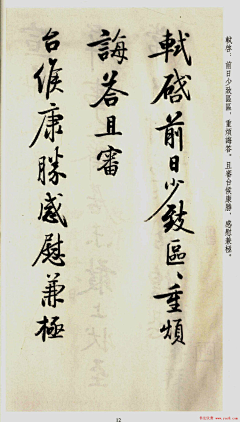 軾啓前日少致區區重煩
誨荅且審
台候康勝感慰兼極
軾啓：前日少致區區，重煩誨答。且審台候康勝，感慰兼極。
12